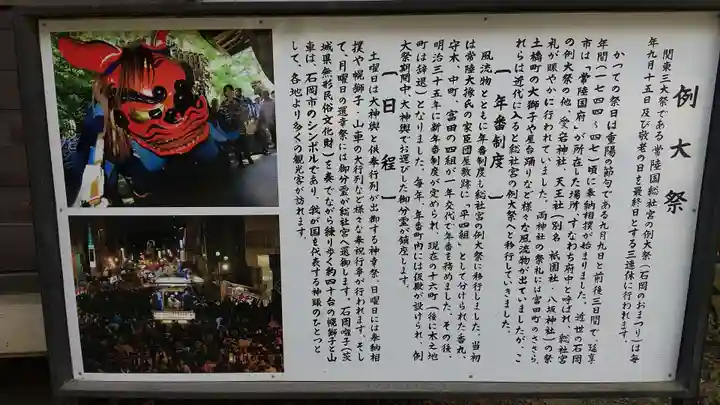 例大祭
関東三大祭である、常陸国総社宮の例大祭（石岡のおまつり）は毎
年九月十五日及び敬老の日を最終日とする三連休に行われます。
かつての祭日は重陽の節句である九月九日と前後三日間で、延享
年間（一七四四～四七）頃に奉納相撲が始まりました。近世の石岡
市は、常陸国府が所在した場所、すなわち府中と呼ばれ、総社宮
の例大祭の他、愛宕神社、天王社（別名 祇園社 八坂神社）の祭
礼が賑やかに行われていました。両神社の祭礼には富田町のささら、
土橋町の大獅子や屋台踊りなど様々な風流物が出ていましたが、こ
れらは近代に入ると総社宮の例大祭へと移行していきました。
【年番制度】
風流物とともに年番制度も総社宮の例大祭に移行しました。当初
は常陸大掾氏の家臣団屋敷跡に「平四組」として分けられた香丸、
守木、中町、富田の四組が一年交代で年番を務めました。その後、
明治三十五年に新年番制度が定められ、現在の十六町（後に木之地
町は辞退）となりました。毎年、年番町内には仮殿が設けられ、例
大祭期間中、大神輿でお運びした御分霊が鎮座します。
【日程】
土曜日には大神輿と供奉行列が出御する神幸祭、日曜日には奉納相
撲や幌獅子・山車の大行列など様々な奉祝行事が行われます。そし
て、月曜日の還幸祭には御分霊が総社宮へ還御します。石岡囃子（茨
城県無形民俗文化財）を奏でながら練り歩く約四十台の幌獅子と山
車は、石岡市のシンボルであり、我が国を代表する神賑のひとつと
して、各地より多くの観光客が訪れます。